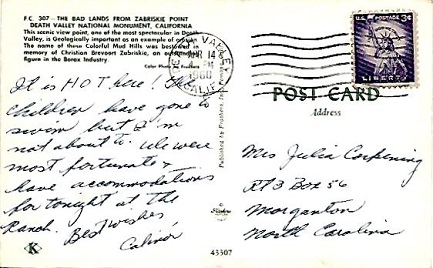 F.C. 307 - THE BAD LANDS FROM ZABRISKIE POINT
DEATH VALLEY NATIONAL MONUMENT, CALIFORNIA
This scenic view point, one of the most spectacular in Death
Valley, is Geologically important as an example of
The name of these Colorful Mud Hills was bestowed in
memory of Christian Brevoort Zabriskie, an
figure in the Borax Industry.
Color Photo by Frashers
DEATH VALLEY
APR 14
PM
1960
CALIF.
U.S. POSTAGE 3¢
LIBERTY
It is HOT here! The
children have gone to
swim but I'm
not about to. We were
most fortunate to
have accommodations
for tonight at the
Ranch. Best wishes,
POST CARD
Address
Mrs Julia Corpening
Rt 3 Box 56
Morganton
North Carolina
K
43307